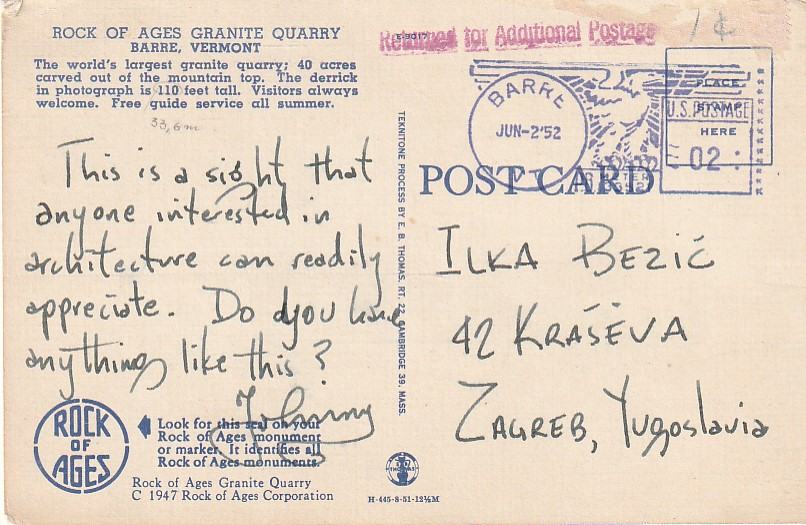 ROCK OF AGES GRANITE QUARRY
BARRE, VERMONT
The world's largest granite quarry; 40 acres
carved out of the mountain top. The derrick
in photograph is 110 feet tall. Visitors always
welcome. Free guide service all summer.
33,6m
This is a sight that
anyone interested in
architecture can readily
appreciate. Do you have
anything like this?
Johnny
ROCK
OF
AGES
Look for this seal on your
Rock of Ages monument
or marker. It identifies all
Rock of Ages monuments.
Rock of Ages Granite Quarry
C 1947 Rock of Ages Corporation
TEKNITONE PROCESS BY E. B. THOMAS, RT. 22, CAMBRIDGE 39, MASS.
THOMAS
H-445-8-51-12½M
Returned for Additional Postage
1¢
BARRE
JUN-2'52
VT
PLACE
STAMP
HERE
U.S. POSTAGE
02
POST CARD
ILKA BEZIĆ
42 KRAŠEVA
ZAGREB, Yugoslavia